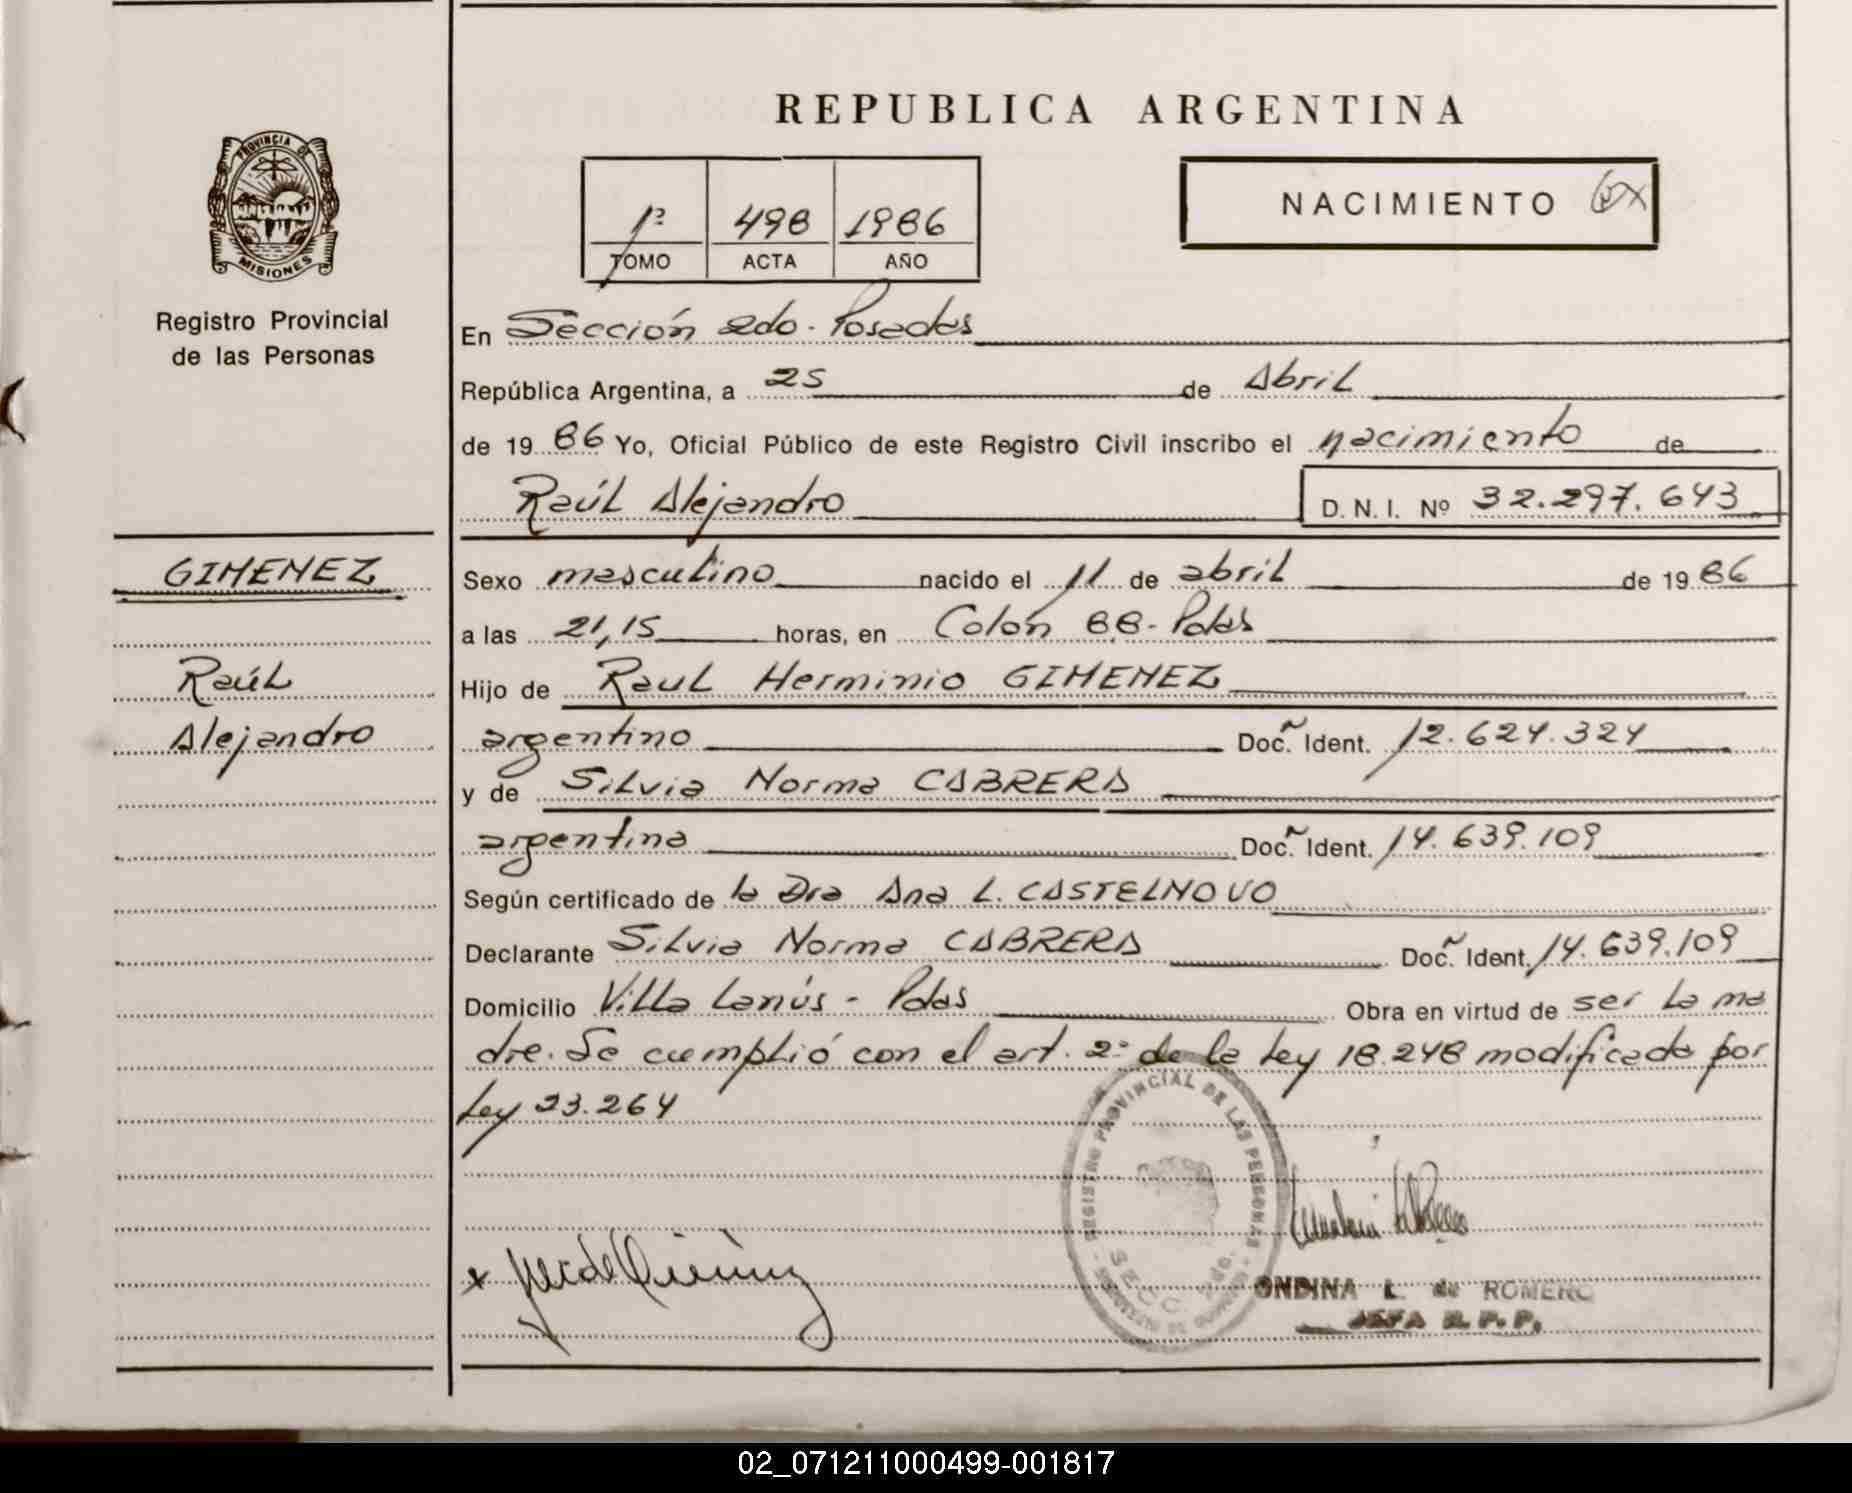 REPUBLICA ARGENTINA
PROVINCIA DE
MISIONES
Registro Provincial
de las Personas
1º 498 1986
TOMO ACTA AÑO
NACIMIENTO
En Sección 2do. Posadas
República Argentina, a 25 de Abril
de 1986 Yo, Oficial Público de este Registro Civil inscribo el nacimiento de
Raúl Alejandro D. N. I. Nº 32.297.643
GIMENEZ
Raúl
Alejandro
Sexo masculino nacido el 11 de abril de 1986
a las 21,15 horas, en Colón 88 - Pdas
Hijo de Raul Herminio GIMENEZ
argentino Doc. Ident. 12.624.324
y de Silvia Norma CABRERA
argentina Doc. Ident. 14.639.109
Según certificado de la Dra Ana L. CASTELNOVO
Declarante Silvia Norma CABRERA Doc. Ident. 14.639.109
Domicilio Villa Lanús - Pdas Obra en virtud de ser la ma
dre. Se cumplió con el art. 2º de la Ley 18.248 modificada por
Ley 23.264
REGISTRO PROVINCIAL DE LAS PERSONAS
SECC. 2do.
ONDINA L. de ROMERO
JEFA R. P. P.
02_071211000499-001817